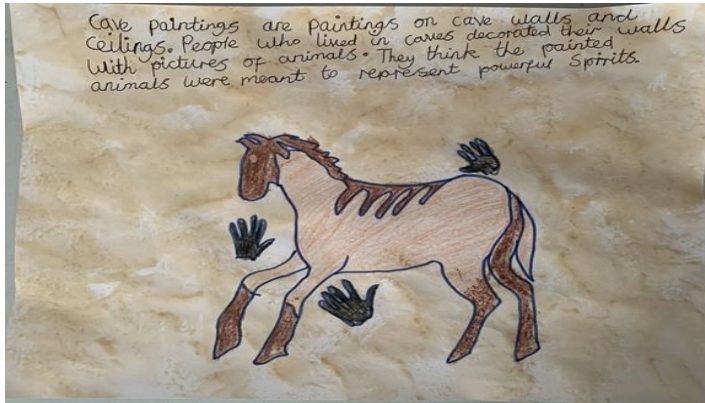 Cave paintings are paintings on cave walls and
Ceilings. People who lived in caves decorated their walls
With pictures of animals. They think the painted
animals were meant to represent powerful Spirits.